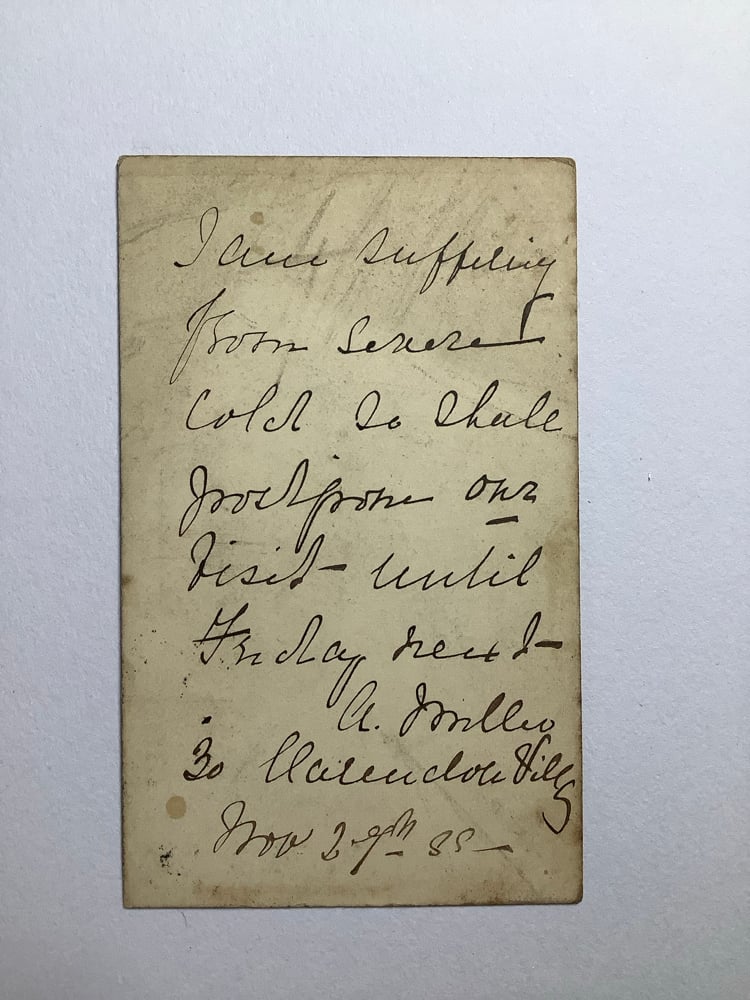 I am suffering
from severe
cold so shall
postpone our
visit until
Friday next
A. Miller
30 Clarendon Villas
Nov 29th 85